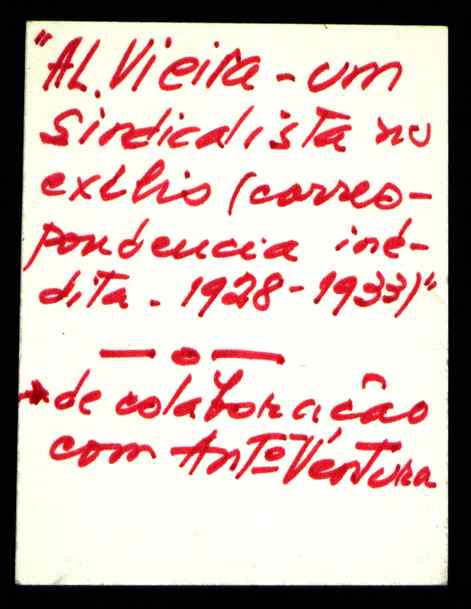 "AL. Vieira - um
Sindicalista no
exílio (corres-
pondência iné-
dita. 1928-1933)"
de colaboração
com Antº Ventura